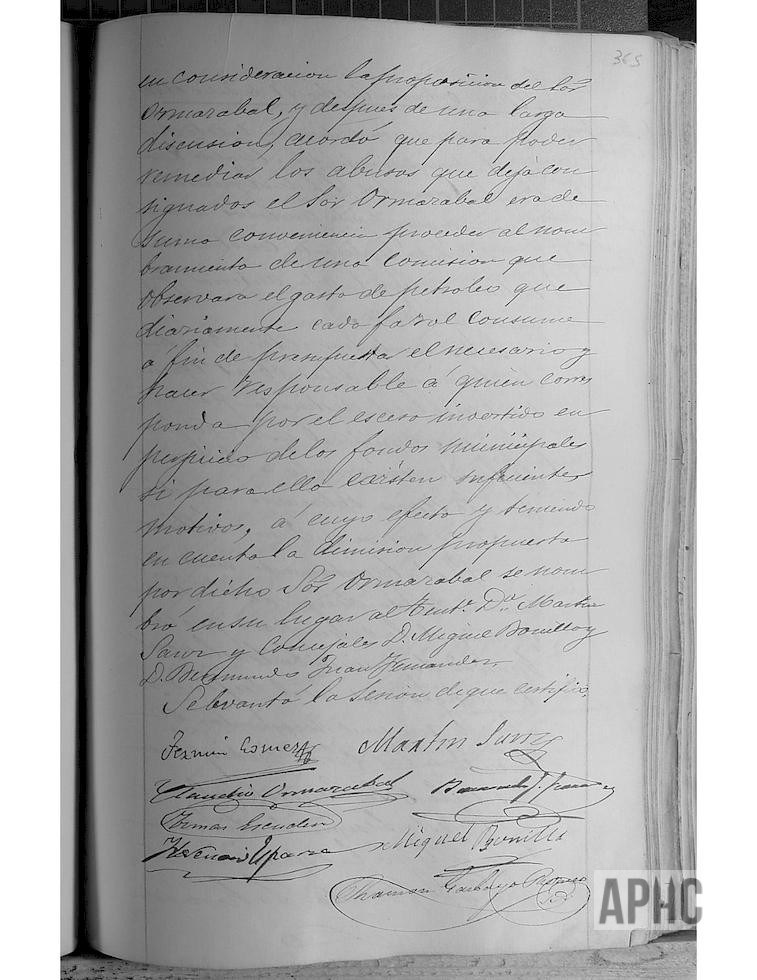 365
en consideracion la proposicion del Sor
Ormazabal, y despues de una larga
discusion, acordó que para poder
remediar los abusos que deja con
signados el Sor Ormazabal era de
suma conveniencia proceder al nom
bramiento de una comision que
observara el gasto de petroleo que
diariamente cada farol consume
á fin de presupuesta el necesario y
hacer responsable á quien corres
ponda por el esceso invertido en
perjuicio de los fondos municipales
si para ello existen suficientes
motivos, á cuyo efecto y teniendo
en cuenta la dimision propuesta
por dicho Sor Ormazabal se nom
bró en su lugar al Tente Dn Martin
Sanz y Concejales D. Miguel Bonilla y
D. Bermundo Juan Fernandez
Se lebantó la sesion de que certifico.
Fermin Martin Sanz
Claudio Ormazabal
Tomas Escudero
Esparza Miguel Bonilla
Ramon
APHC